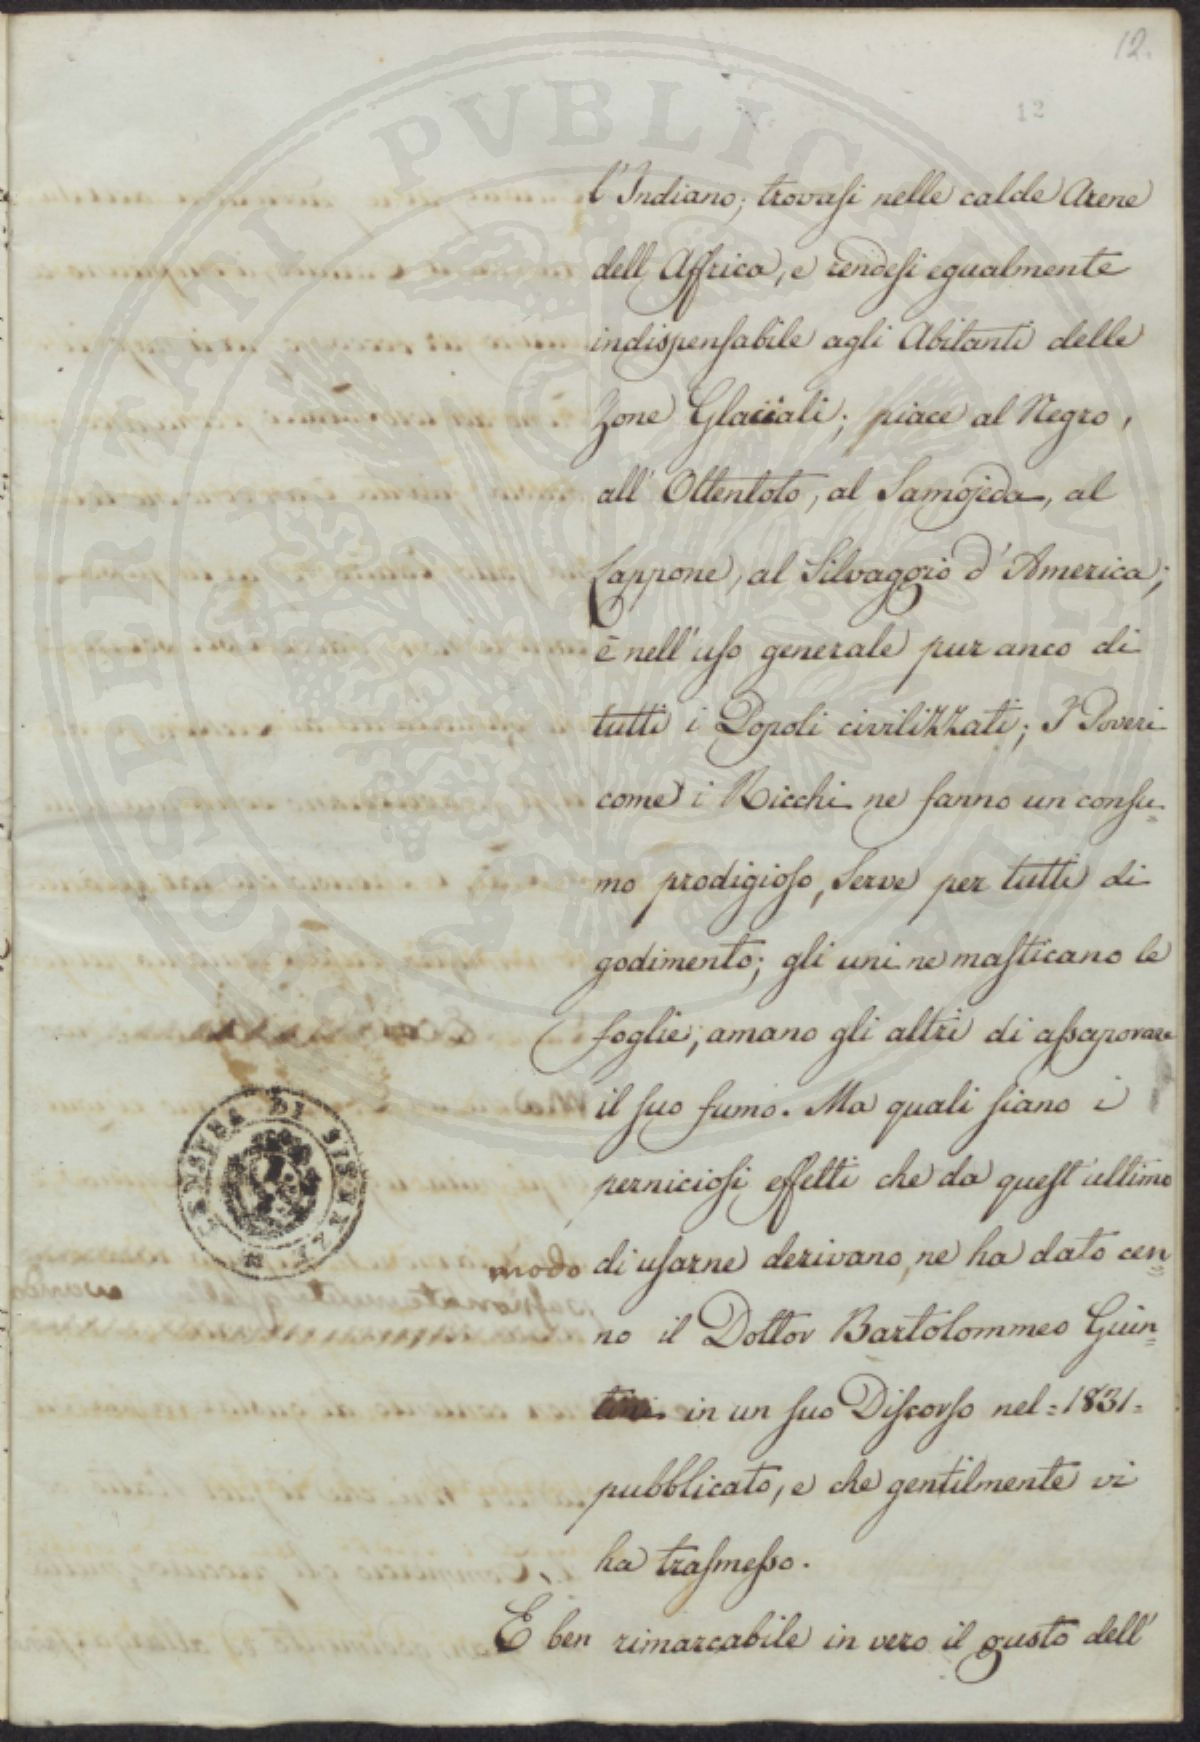 12.
12
l'Indiano; trovasi nelle calde Arene
dell'Affrica, e rendesi egualmente
indispensabile agli Abitanti delle
Zone Glaciali; piace al Negro,
all'Ottentoto, al Samojeda, al
Lappone, al Silvaggio d'America;
è nell'uso generale pur anco di
tutti i Popoli civilizzati; I Poveri
come i Ricchi ne fanno un consu=
mo prodigioso, serve per tutti di
godimento; gli uni ne masticano le
foglie, amano gli altri di assaporare
il suo fumo. Ma quali siano i
perniciosi effetti che da quest'ultimo
modo di usarne derivano, ne ha dato cen=
no il Dottor Bartolommeo Guin=
tini in un suo Discorso nel=1831=
pubblicato, e che gentilmente vi
ha trasmesso.
E ben rimarcabile in vero il gusto dell'
PROSPERITATI PVBLICAE AVGENDAE